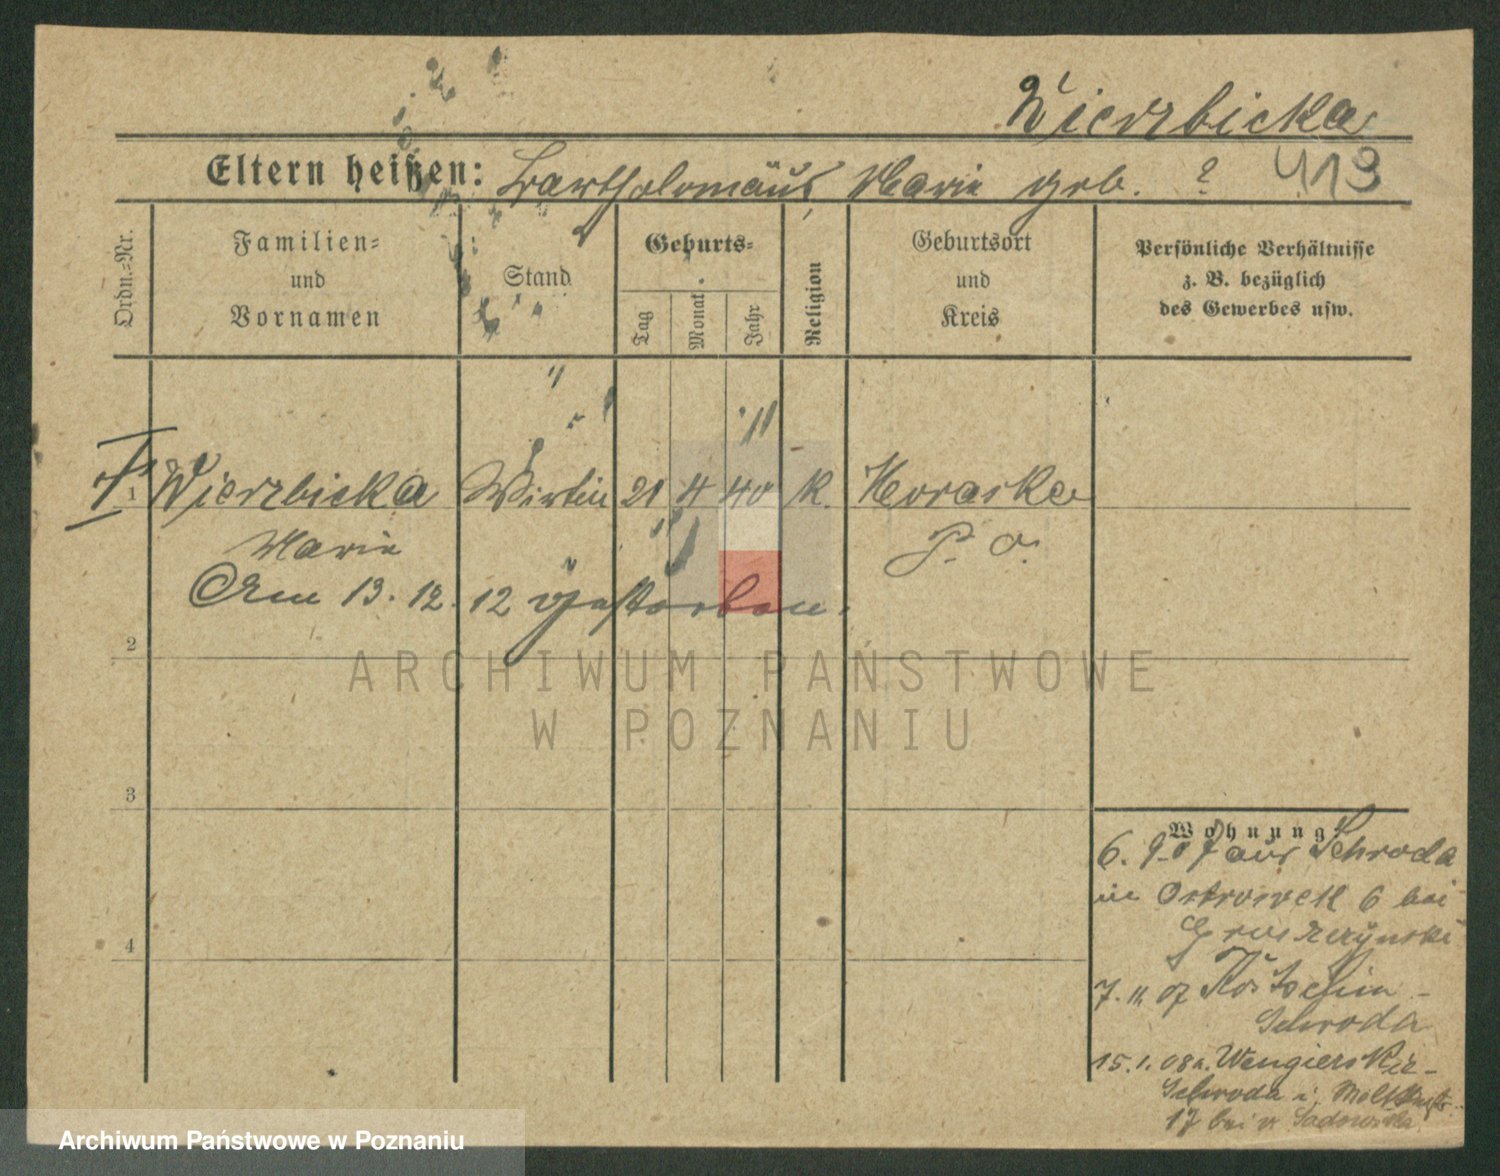 Wierzbicka
Eltern heißen: Bartholomäus Marie geb. ? 413
Ordn.=Nr.
Familien=
und
Vornamen
Stand
Geburts=
Tag
Monat
Jahr
Religion
Geburtsort
und
Kreis
Persönliche Verhältnisse
z. B. bezüglich
des Gewerbes usw.
1 Wierzbicka Wirtin 21 4 40 K.
Marie P. O.
Am 13. 12. 12 gestorben.
2
ARCHIWUM PAŃSTWOWE
W POZNANIU
3
4
Wohnung:
6. 9. 07 aus Schroda
in Ostrowek 6 bei
7. 11. 07 Kostschin -
Schroda
15. 1. 08 n. Wengierski
Schroda i. Moltkestr.
17 bei v. Sadowska
Archiwum Państwowe w Poznaniu